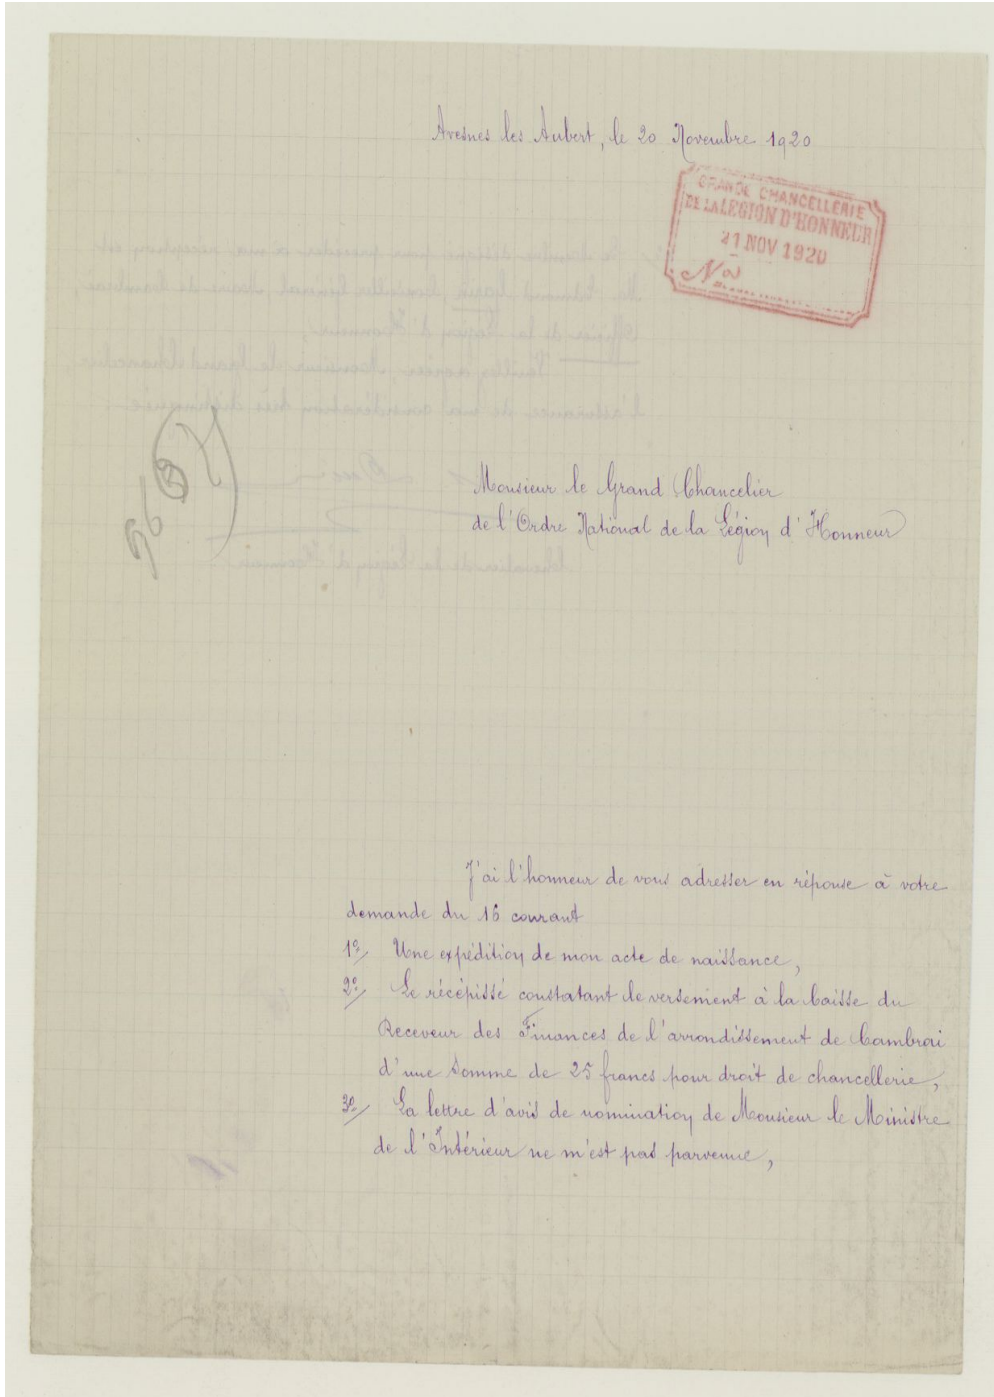 Avesnes les Aubert, le 20 Novembre 1920
GRANDE CHANCELLERIE
DE LA LÉGION D'HONNEUR
21 NOV 1920
Monsieur le Grand Chancelier
de l'Ordre National de la Légion d'Honneur
J'ai l'honneur de vous adresser en réponse à votre
demande du 16 courant
1º/ Une expédition de mon acte de naissance,
2º/ Le récépissé constatant le versement à la Caisse du
Receveur des Finances de l'arrondissement de Cambrai
d'une somme de 25 francs pour droit de chancellerie,
3º/ La lettre d'avis de nomination de Monsieur le Ministre
de l'Intérieur ne m'est pas parvenue,